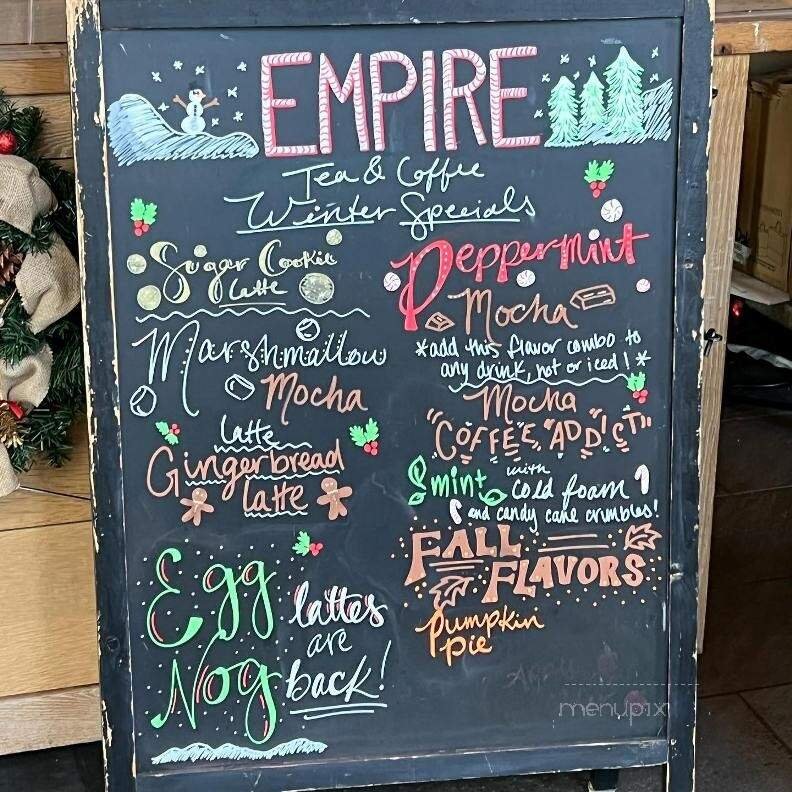 EMPIRE
Tea & Coffee
Winter Specials
Sugar Cookie
Latte
Marshmallow
Mocha
Latte
Gingerbread
latte
Egg
Nog
lattes
are
back!
Peppermint
Mocha
*add this flavor combo to
any drink, hot or iced!*
Mocha
"COFFEE ADDICT"
& mint with cold foam
and candy cane crumbles!
FALL
FLAVORS
Pumpkin
Pie
menupix